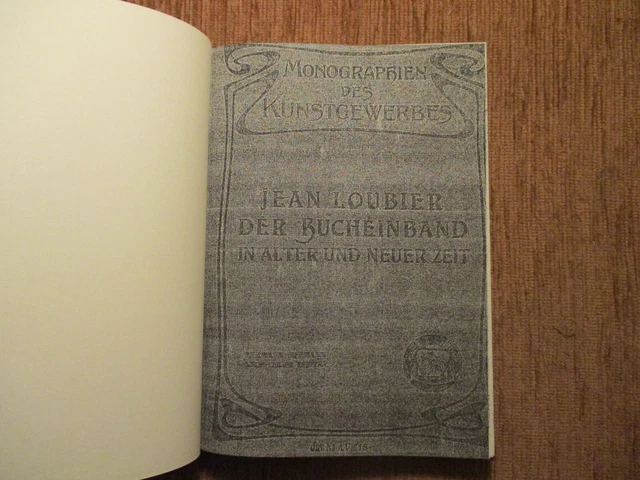 MONOGRAPHIEN
DES
KUNSTGEWERBES
JEAN LOUBIER
DER BUCHEINBAND
IN ALTER UND NEUER ZEIT